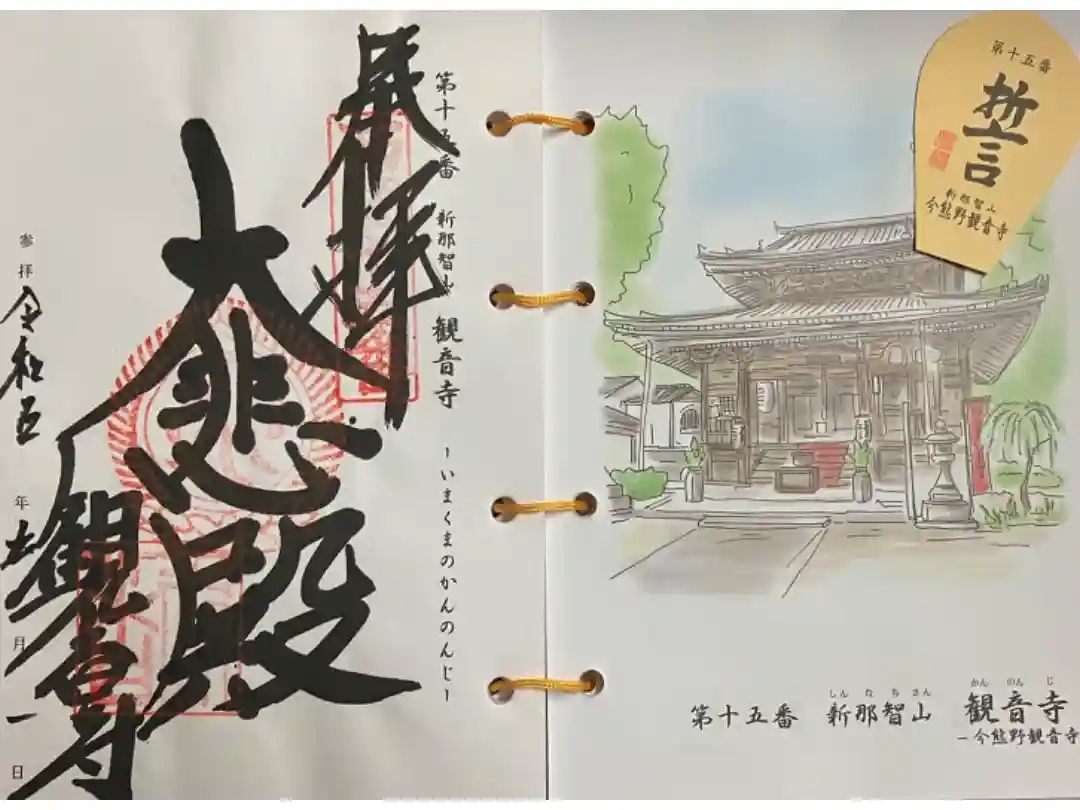 第十五番
誓
新那智山
今熊野観音寺
しんなちさん かんのんじ
第十五番 新那智山 観音寺
-今熊野観音寺
第十五番 新那智山 観音寺 -いまくまのかんのんじ-
奉拝
大悲殿
観音寺
参拝 令和五年 月一日